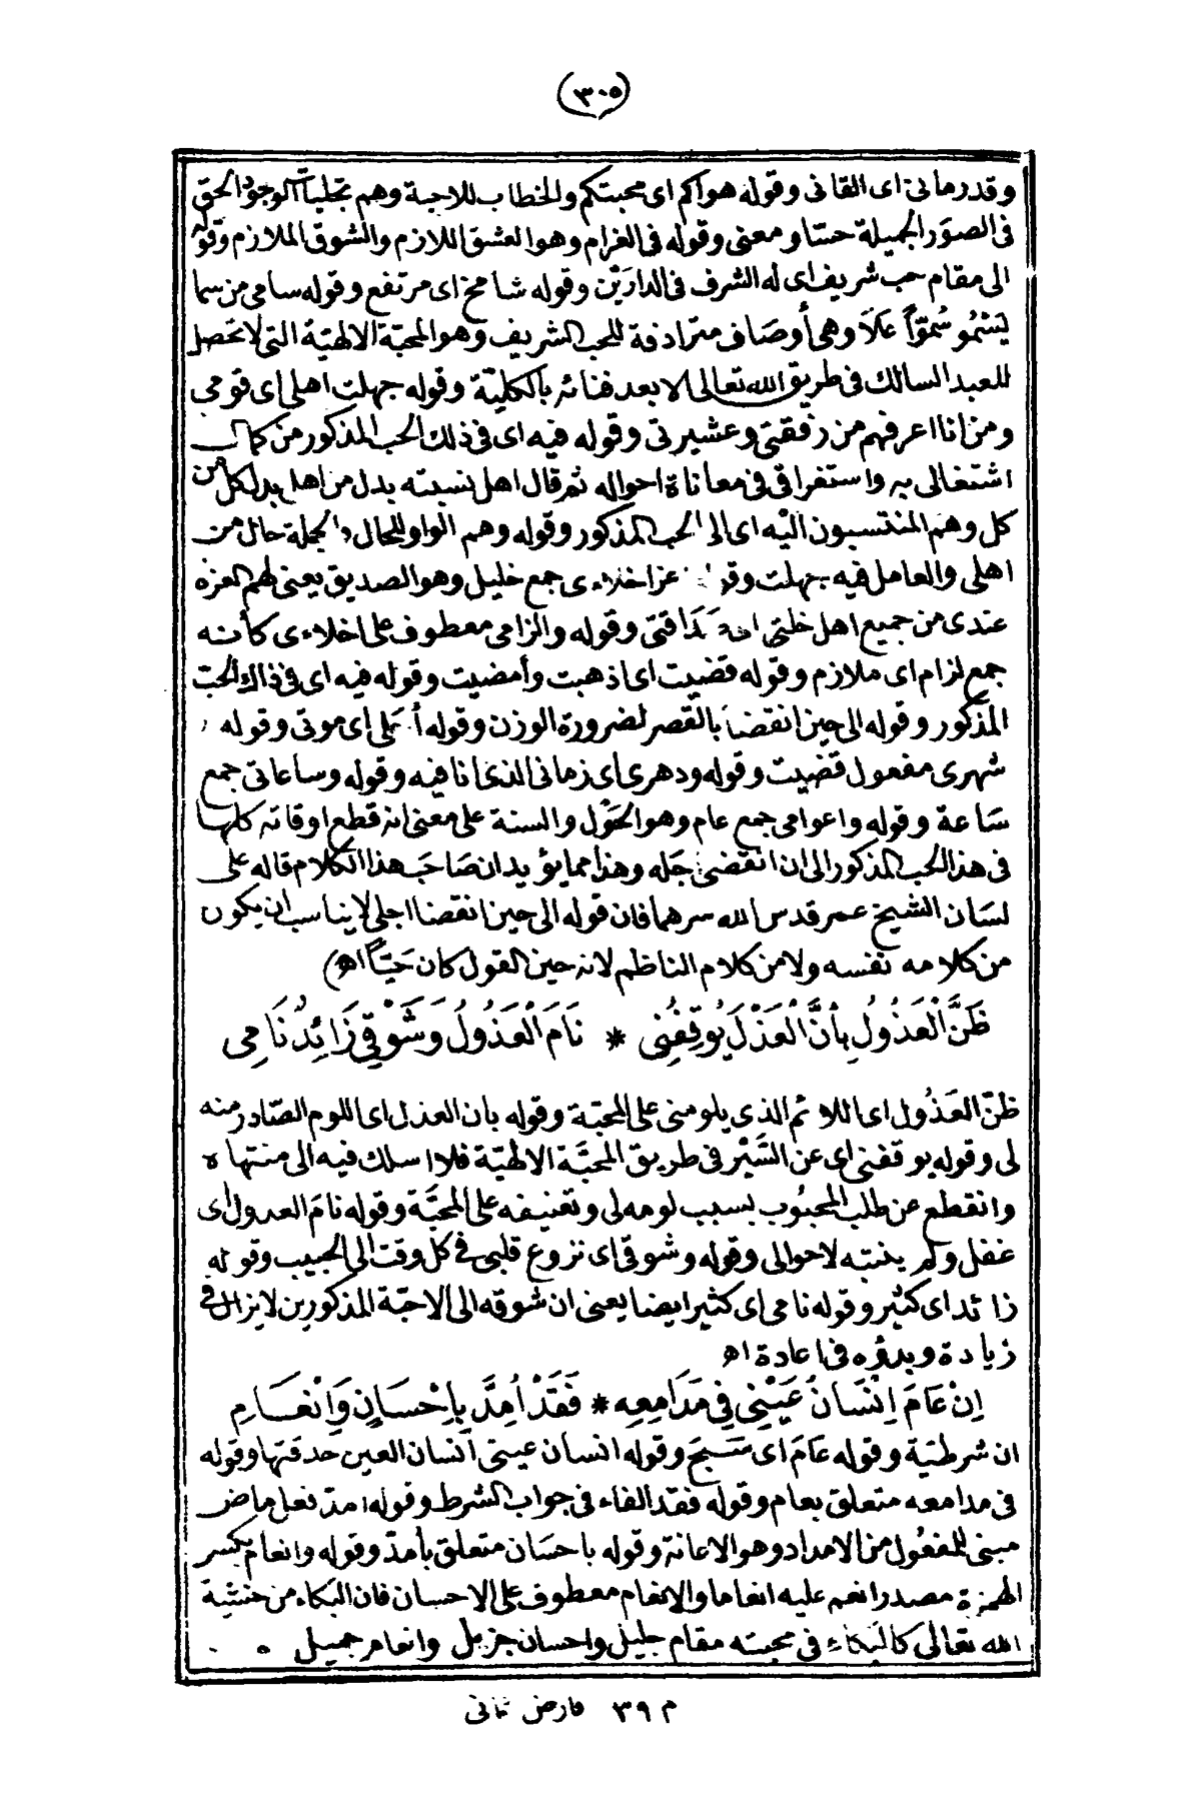 (٣٠٥)
وقد رمانى اى القانى وقوله هواكم اى محبتكم والخطاب للاحبة وهم تجليات الوجود الحق
فى الصور الجميلة حسّا ومعنى وقوله فى الغرام وهو العشق اللازم والشوق الملازم وقوله
الى مقام حب شريف اى له الشرف فى الدارَيْن وقوله شامخ اى مرتفع وقوله سامى من سما
يَسْمُو سُمُوّاً عَلَا وهى أوصَاف مترادفة للحب الشريف وهو المحبّة الالهيّة التى لا تحصل
للعبد السالك فى طريق الله تعالى الا بعد فنائه بالكليّة وقوله جهلت اهلى اى قومى
ومن انا اعرفهم من رفقتى وعشيرتى وقوله فيه اى فى ذلك الحب المذكور من كمال
اشتغالى به واستغراقى فى معاناة احواله ثم قال اهل نسبته بدل من اهلى بدل كل من
كل وهم المنتسبون اليْه اى الى الحب المذكور وقوله وهم الواو للحال والجملة حال من
اهلى والعامل فيه جهلت وقوله عز اخلاءى جمع خليل وهو الصديق يعنى لهم العزه
عندى من جميع اهل خلتى وقوله والزامى معطوف على اخلاءى كأنه
جمع لزام اى ملازم وقوله قضيت اى اذهبت وأمضيت وقوله فيه اى فى ذاك الحبّ
المذكور وقوله الى حين انقضا بالقصر لضرورة الوزن وقوله أجَلى اى موتى وقوله
شهرى مفعول قضيت وقوله ودهرى اى زمانى الذى انا فيه وقوله وساعاتى جمع
سَاعة وقوله واعوامى جمع عام وهو الحَوْل والسنة على معنى انه قطع اوقاته كلها
فى هذا الحب المذكور الى ان انقضى اجَله وهذا مما يؤيد ان صَاحَب هذا الكلام قاله على
لسَان الشيخ عمر قدس الله سرهما فان قوله الى حين انقضا اجلى لا يناسب ان يكون
من كلامه نفسه ولا من كلام الناظم لانه حين القول كان حَيّاً اهـ)
ظَنَّ الْعَذُولُ بِأَنَّ الْعَذْلَ يُوقِفُنِى * نَامَ الْعَذُولُ وَشَوْقِي زَائِدٌ نَامِى
ظنّ العَذُول اى اللائم الذى يلومنى على المحبّة وقوله بان العذل اى اللوم الصّادر منه
لى وقوله يوقفنى اى عن السَّيْر فى طريق المحبَّة الالهيّة فلا اسلك فيه الى منتهاه
وانقطع عن طلب المحبُوب بسبب لومه لى وتعنيفه على المحبَّة وقوله نامَ العذول اى
غفل ولم ينتبه لاحوالى وقوله وشوقى اى نزوع قلبى فى كل وقت الى الحبيب وقوله
زائد اى كثير وقوله نامى اى كثير ايضا يعنى ان شوقه الى الاحبّة المذكورين لا يزال فى
زيادة وبدؤه فى اعادة اهـ
اِنْ عَامَ اِنْسَانُ عَيْنِي فِي مَدَامِعِهِ * فَقَدْ اُمِدَّ بِاِحْسَانٍ وَاِنْعَامِ
ان شرطيّة وقوله عَامَ اى سَبَحَ وقوله انسان عينى انسان العين حدقتها وقوله
فى مدامعه متعلق بعام وقوله فقد الفاء فى جواب الشرط وقوله امدّ فعل ماض
مبنى للمفعُول من الامداد وهو الاعانة وقوله باحسَان متعلق بأمدّ وقوله وانعام بكسر
الهمزة مصدر انعم عليه انعاما والانعام معطوف على الاحسان فان البكاء من خشية
الله تعالى كالبكاء فى محبته مقام جليل واحسان جزيل وانعام جميل
م ٣٩ فارض ثانى